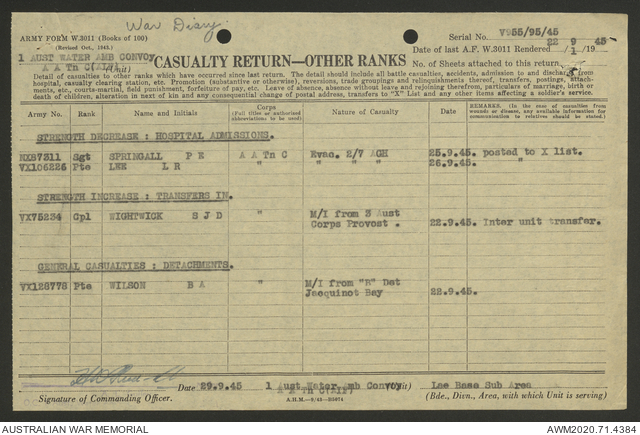 War Diary.
ARMY FORM W.3011 (Books of 100)
(Revised Oct., 1943.)
Serial No. V955/95/45
1 AUST WATER AMB CONVOY
A A Tn C(AIF) (Unit)
CASUALTY RETURN—OTHER RANKS
22 9 45
Date of last A.F. W.3011 Rendered / / 19
No. of Sheets attached to this return
Detail of casualties to other ranks which have occurred since last return. The detail should include all battle casualties, accidents, admission to and discharge from
hospital, casualty clearing station, etc. Promotion (substantive or otherwise), reversions, trade groupings and relinquishments thereof, transfers, postings, attach-
ments, etc., courts-martial, field punishment, forfeiture of pay, etc. Leave of absence, absence without leave and rejoining therefrom, particulars of marriage, birth or
death of children, alteration in next of kin and any consequential change of postal address, transfers to "X" List and any other items affecting a soldier's service.
Army No. Rank Name and Initials Corps (Full titles or authorised abbreviations to be used) Nature of Casualty Date of Casualty REMARKS. (In the case of casualties from wounds or disease, any available information of communication to relatives should be stated)
STRENGTH DECREASE : HOSPITAL ADMISSIONS.
NX87311 Sgt SPRINGALL P E A A Tn C Evac. 2/7 AGH 25.9.45. posted to X list.
VX106226 Pte LEE L R " " " " 26.9.45. "
STRENGTH INCREASE : TRANSFERS IN.
VX75234 Cpl WIGHTWICK S J D " M/I from 3 Aust
Corps Provost . 22.9.45. Inter unit transfer.
GENERAL CASUALTIES : DETACHMENTS.
VX128778 Pte WILSON B A " M/I from "R" Det
Jacquinot Bay 22.9.45.
Date 29.9.45 1 Aust Water Amb Convoy (Unit) Lae Base Sub Area
A A Tn C(AIF)
Signature of Commanding Officer. (Bde., Divn., Area, with which Unit is serving)
AUSTRALIAN WAR MEMORIAL AWM2020.71.4384